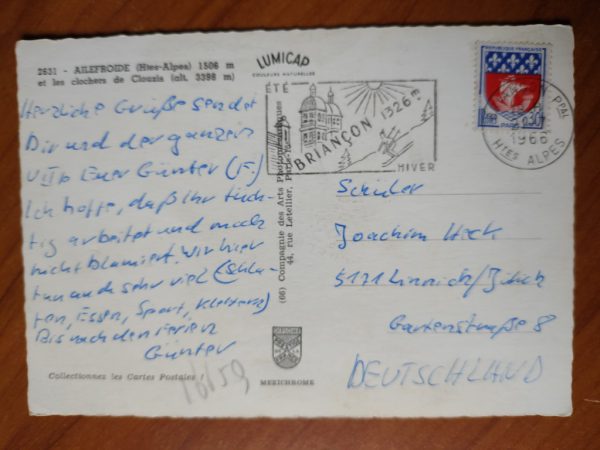 2631 - AILEFROIDE (Htes-Alpes) 1506 m
et les clochers de Clouzis (alt. 3398 m)
LUMICAP
COULEURS NATURELLES
Herzliche Grüße sendet
Dir und der ganzen
VIIb Euer Günter (F.)
Ich hoffe, daß Ihr tüch-
tig arbeitet und mich
nicht blamiert. Wir hier
tun auch sehr viel (Schla-
fen, Essen, Sport, Klettern)
Bis nach den Ferien
Günter
Collectionnez les Cartes Postales
16/59
(66) Compagnie des Arts Photomécaniques
44, rue Letellier, Paris-15e
MEXICHROME
ÉTÉ
BRIANÇON 1326 m
HIVER
REPUBLIQUE FRANÇAISE
0,30
PARIS
PPAL
1966
HTES ALPES
Schüler
Joachim Heck
5171 Linnich/Jülich
Gartenstraße 8
DEUTSCHLAND